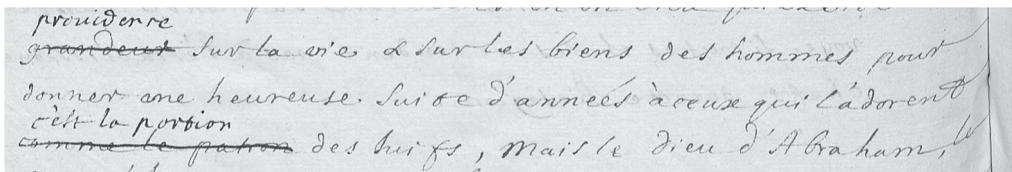 providence
grandeur sur la vie & sur les biens des hommes pour
donner une heureuse suite d'années à ceux qui l'adorent
c'est la portion
comme le patron des Juifs, mais le Dieu d'Abraham, le